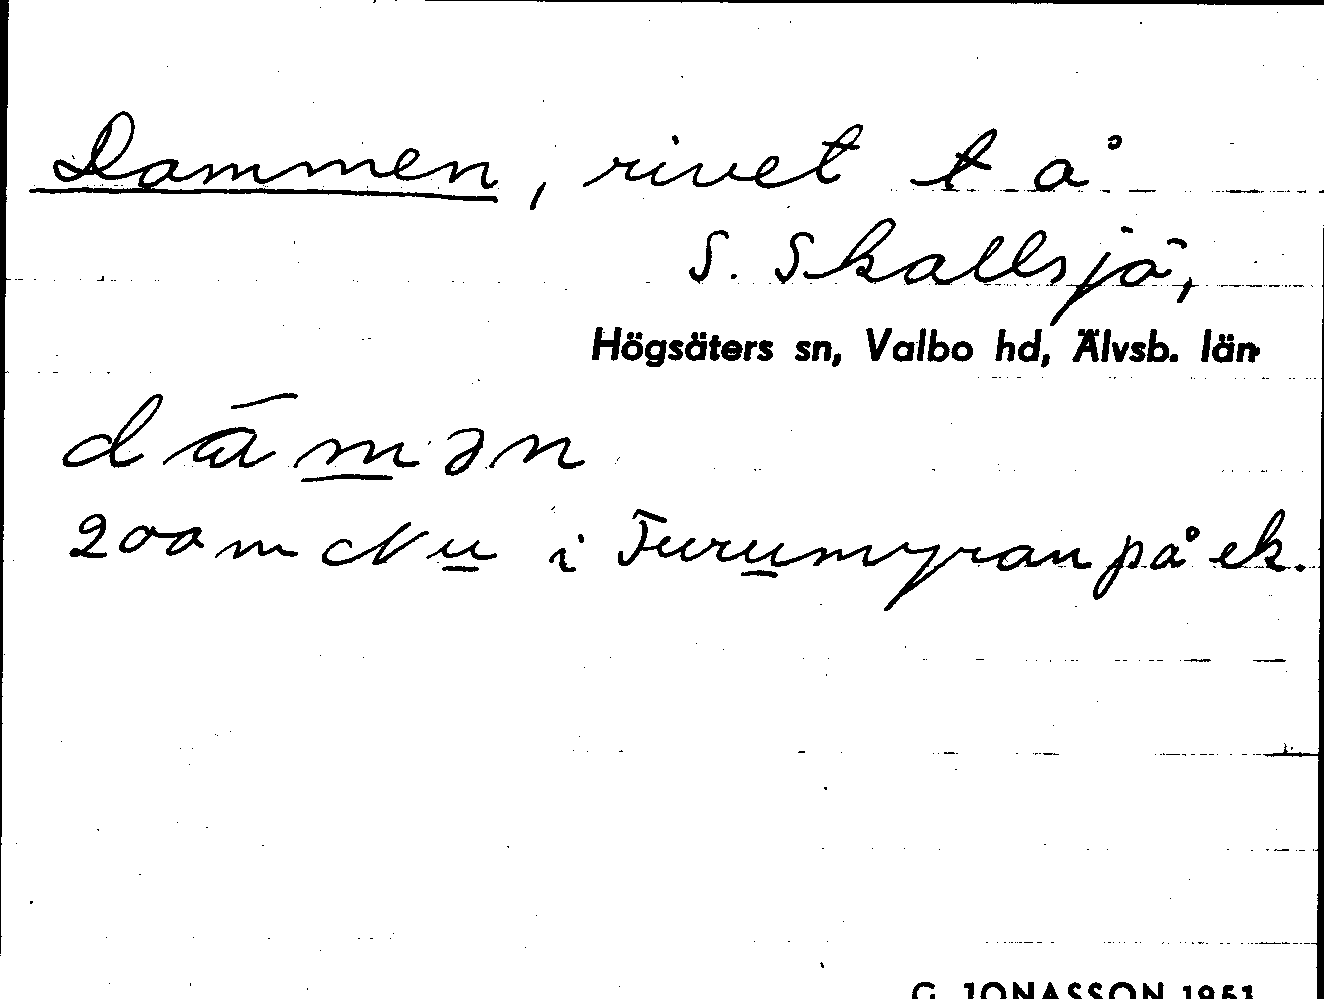 Dammen, rivet t å
S. Skallsjö,
Högsäters sn, Valbo hd, Älvsb. län
dāmən
200 m N u i Furumyran på ek.
G. JONASSON 1951